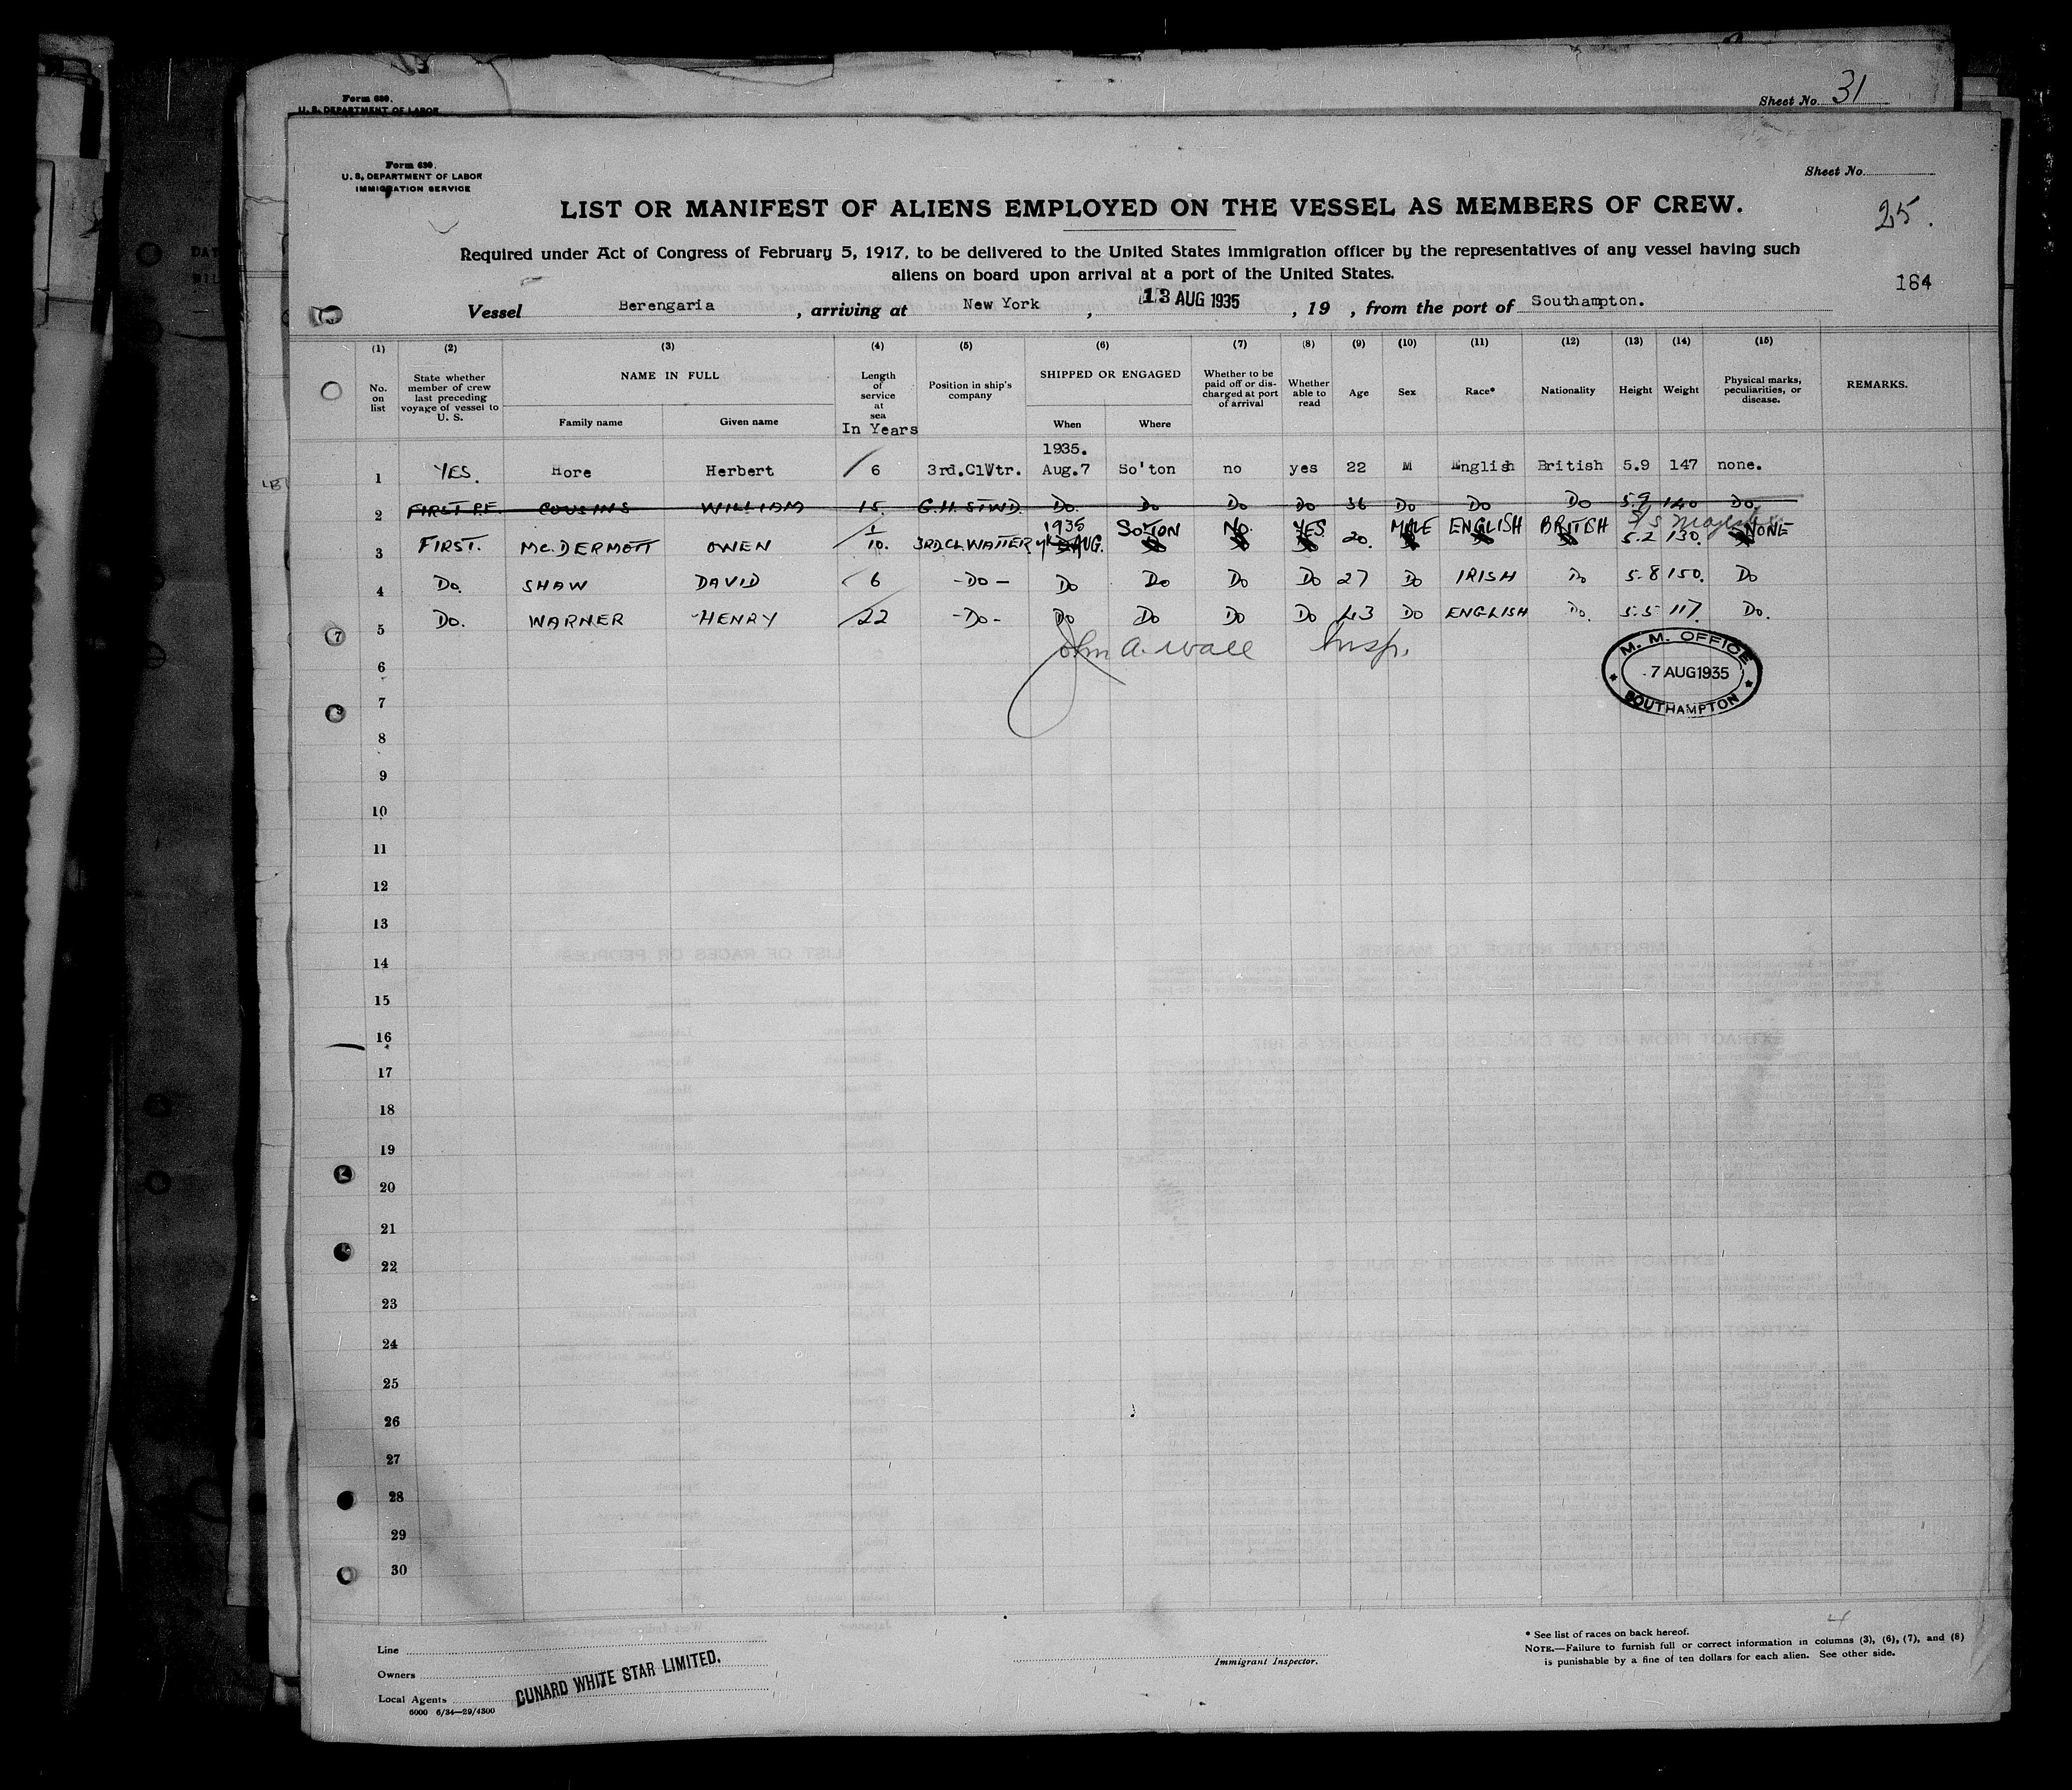 Form 630.
U. S. DEPARTMENT OF LABOR
Sheet No. 31
Form 630.
U. S. DEPARTMENT OF LABOR
IMMIGRATION SERVICE
Sheet No.
25.
LIST OR MANIFEST OF ALIENS EMPLOYED ON THE VESSEL AS MEMBERS OF CREW.
Required under Act of Congress of February 5, 1917, to be delivered to the United States immigration officer by the representatives of any vessel having such
aliens on board upon arrival at a port of the United States.
184
Vessel Berengaria, arriving at New York, 13 AUG 1935, 19 , from the port of Southampton.
(1) (2) (3) (4) (5) (6) (7) (8) (9) (10) (11) (12) (13) (14) (15)
No. on list State whether member of crew last preceding voyage of vessel to U. S. NAME IN FULL Family name Given name Length of service at sea In Years Position in ship's company SHIPPED OR ENGAGED When Where Whether to be paid off or discharged at port of arrival Whether able to read Age Sex Race* Nationality Height Weight Physical marks, peculiarities, or disease. REMARKS.
1935.
1 YES. Hore Herbert 6 3rd.ClWtr. Aug.7 So'ton no yes 22 M English British 5.9 147 none.
2 FIRST P.F. COUSINS WILLIAM 15. G.H. STWD. Do. Do Do Do 36 Do Do Do 5.9 140 Do.
1935 SO'TON NO. YES. MALE ENGLISH BRITISH S/S Majestic NONE
3 FIRST. MC.DERMOTT OWEN 1/10. 3RD.CL.WAITER AUG. 20. 5.2 130.
4 Do. SHAW DAVID 6 -DO- Do Do Do Do 27 Do IRISH Do 5.8 150. Do
5 Do. WARNER HENRY 22 -DO- Do Do Do Do 43 Do ENGLISH Do. 5.5 117. Do.
John A. Wall Insp.
M. M. OFFICE
7 AUG 1935
SOUTHAMPTON
6
7
8
9
10
11
12
13
14
15
16
17
18
19
20
21
22
23
24
25
26
27
28
29
30
4
Line
Owners
Local Agents
CUNARD WHITE STAR LIMITED.
6000 6/34—29/4300
Immigrant Inspector.
* See list of races on back hereof.
NOTE.—Failure to furnish full or correct information in columns (3), (6), (7), and (8)
is punishable by a fine of ten dollars for each alien. See other side.